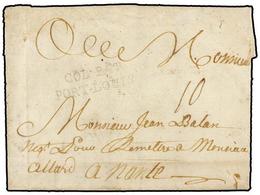 A Monsieur
COL. PAR
PORT-LOUIS
10
Monsieur Jean Balan
neg.t Pour Remettre a Monsieur
allard a Nante